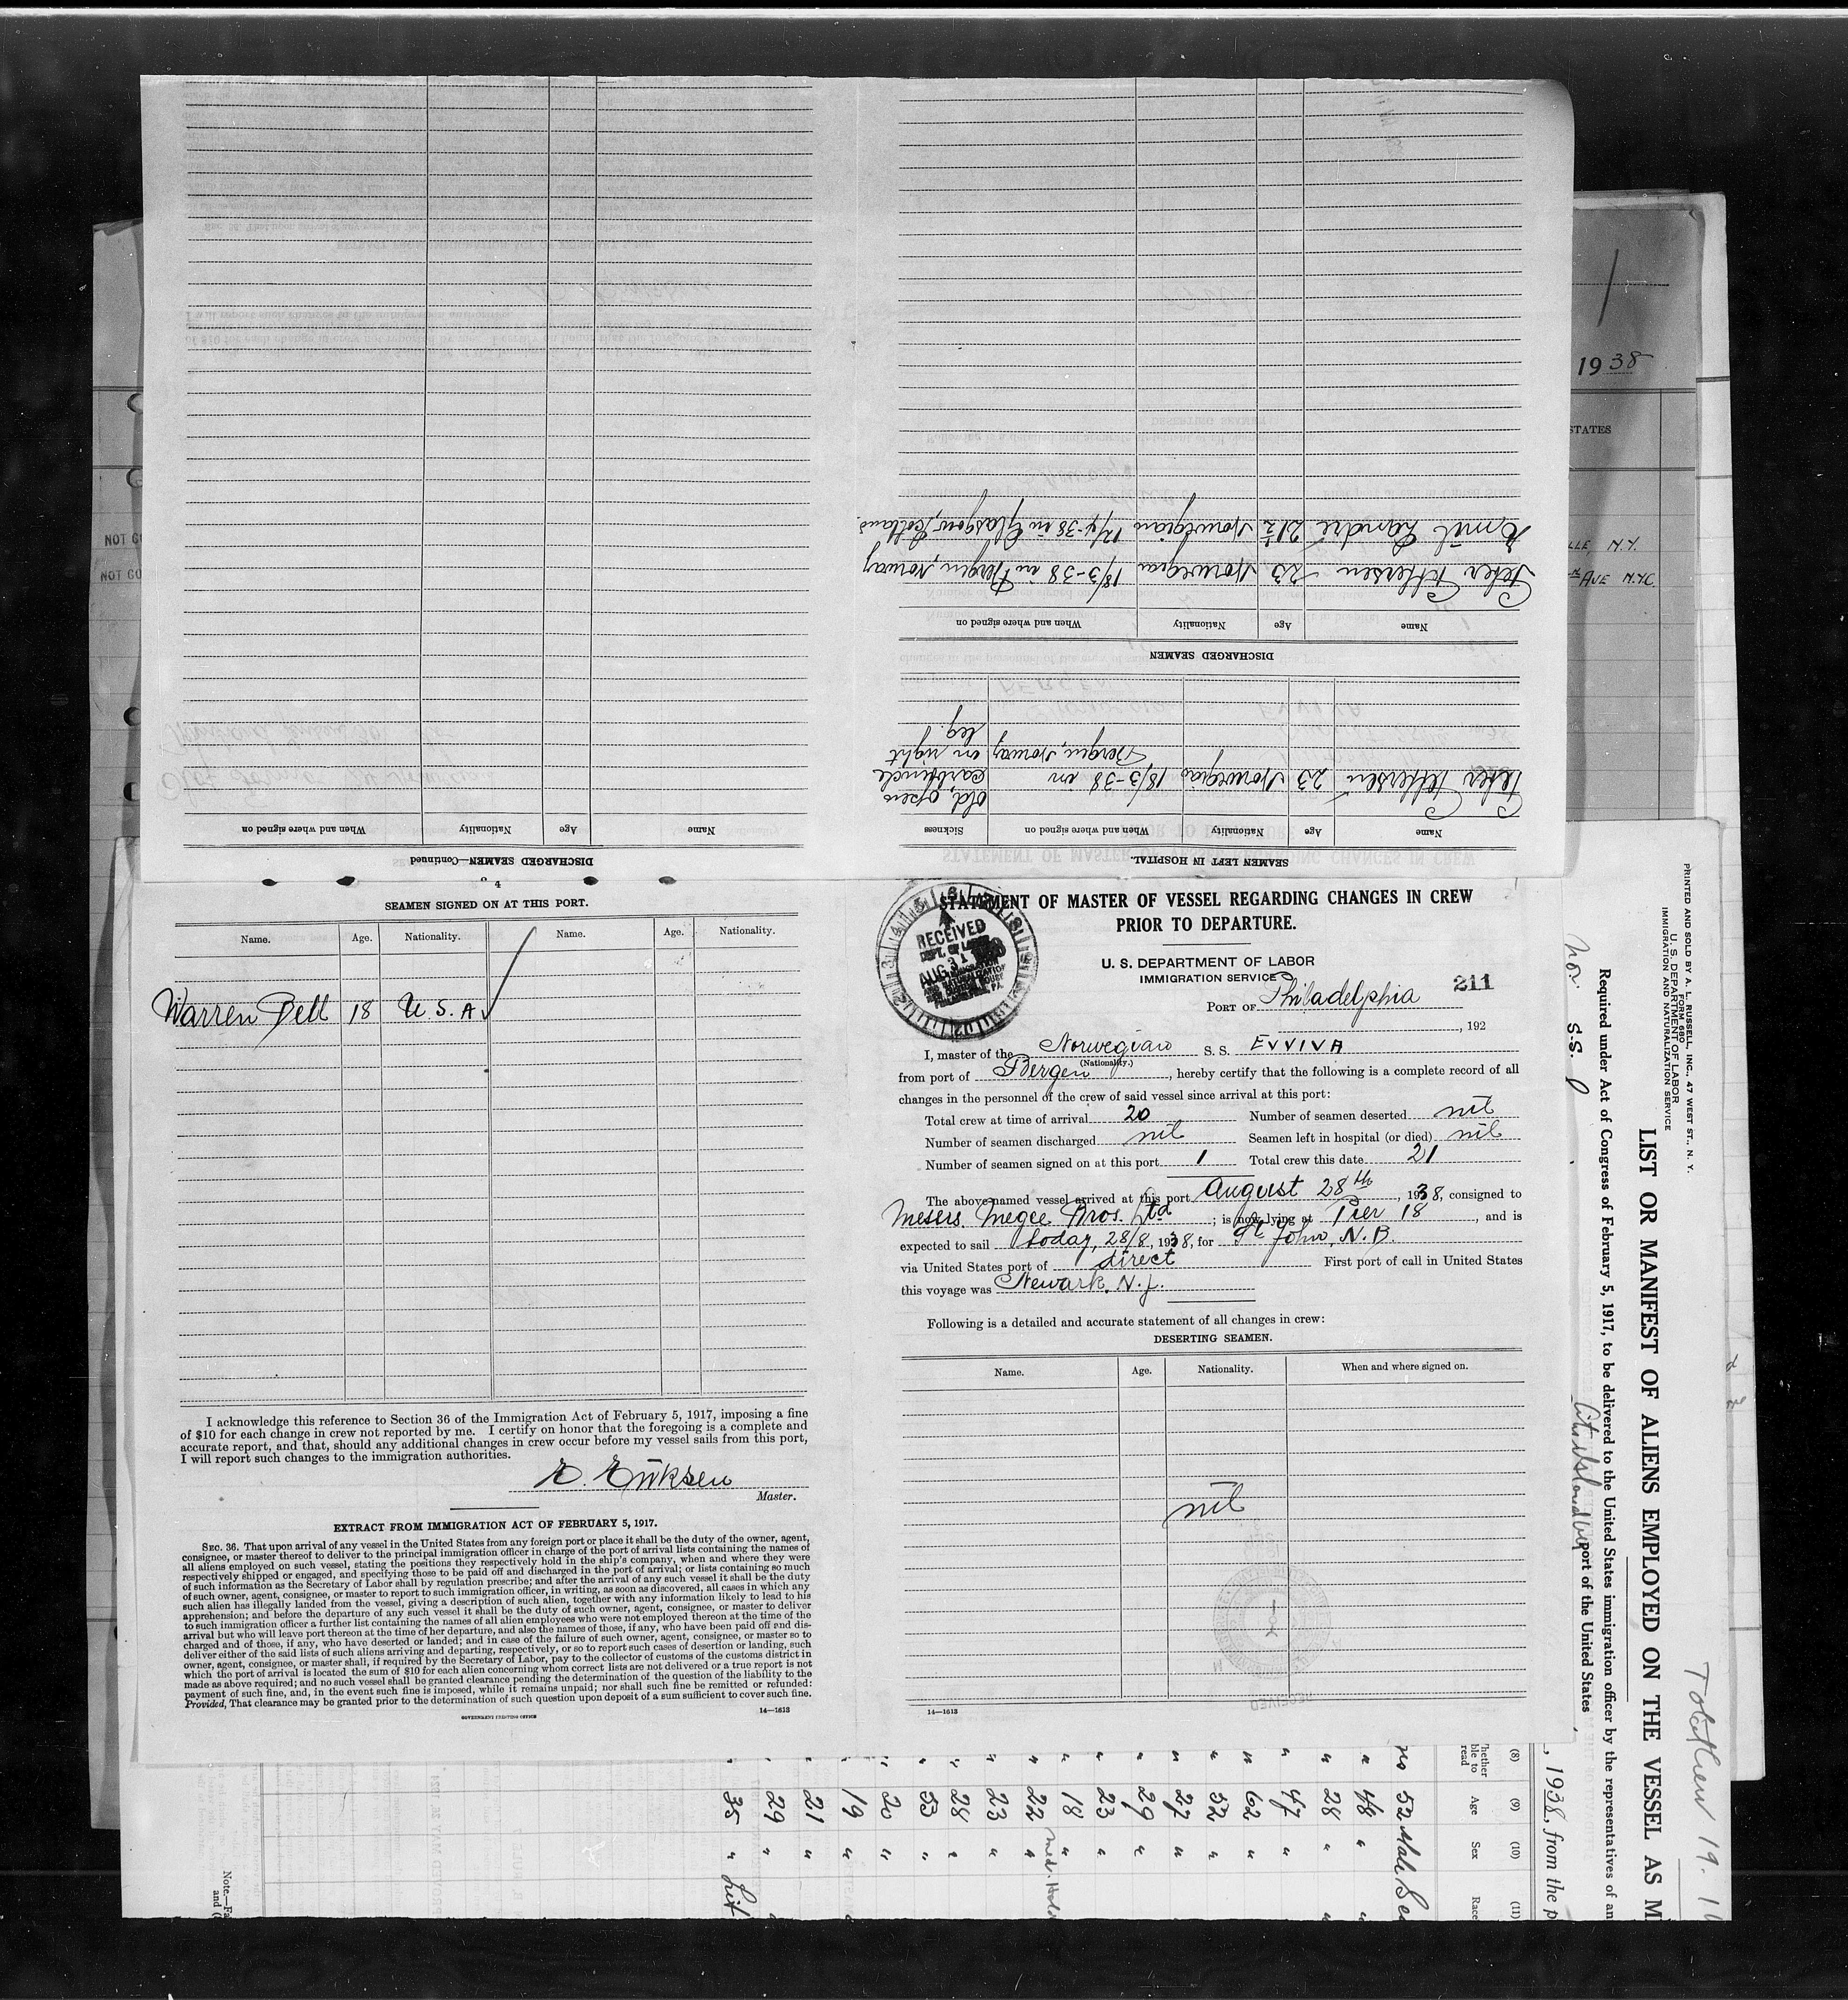 SEAMEN SIGNED ON AT THIS PORT.
Name. Age. Nationality. Name. Age. Nationality.
Warren Dell 18 U.S.A
I acknowledge this reference to Section 36 of the Immigration Act of February 5, 1917, imposing a fine
of $10 for each change in crew not reported by me. I certify on honor that the foregoing is a complete and
accurate report, and that, should any additional changes in crew occur before my vessel sails from this port,
I will report such changes to the immigration authorities.
E. Eriksen
Master.
EXTRACT FROM IMMIGRATION ACT OF FEBRUARY 5, 1917.
SEC. 36. That upon arrival of any vessel in the United States from any foreign port or place it shall be the duty of the owner, agent,
consignee, or master thereof to deliver to the principal immigration officer in charge of the port of arrival lists containing the names of
all aliens employed on such vessel, stating the positions they respectively hold in the ship's company, when and where they were
respectively shipped or engaged, and specifying those to be paid off and discharged in the port of arrival; or lists containing so much
of such information as the Secretary of Labor shall by regulation prescribe; and after the arrival of any such vessel it shall be the duty
of such owner, agent, consignee, or master to report to such immigration officer, in writing, as soon as discovered, all cases in which any
such alien has illegally landed from the vessel, giving a description of such alien, together with any information likely to lead to his
apprehension; and before the departure of any such vessel it shall be the duty of such owner, agent, consignee, or master to deliver
to such immigration officer a further list containing the names of all alien employees who were not employed thereon at the time of the
arrival but who will leave port thereon at the time of her departure, and also the names of those, if any, who have been paid off and dis-
charged and of those, if any, who have deserted or landed; and in case of the failure of such owner, agent, consignee, or master so to
deliver either of the said lists of such aliens arriving and departing, respectively, or so to report such cases of desertion or landing, such
owner, agent, consignee, or master shall, if required by the Secretary of Labor, pay to the collector of customs of the customs district in
which the port of arrival is located the sum of $10 for each alien concerning whom correct lists are not delivered or a true report is not
made as above required; and no such vessel shall be granted clearance pending the determination of the question of the liability to the
payment of such fine, and, in the event such fine is imposed, while it remains unpaid; nor shall such fine be remitted or refunded:
Provided, That clearance may be granted prior to the determination of such question upon deposit of a sum sufficient to cover such fine.
GOVERNMENT PRINTING OFFICE 14—1613
STATEMENT OF MASTER OF VESSEL REGARDING CHANGES IN CREW
PRIOR TO DEPARTURE.
RECEIVED
AUG 31 1938
PHILADELPHIA, PA.
U. S. DEPARTMENT OF LABOR
IMMIGRATION SERVICE
211
PORT OF Philadelphia
, 192
I, master of the Norwegian S. S. EVVIVA
(Nationality.)
from port of Bergen, hereby certify that the following is a complete record of all
changes in the personnel of the crew of said vessel since arrival at this port:
Total crew at time of arrival 20 Number of seamen deserted nil
Number of seamen discharged nil Seamen left in hospital (or died) nil
Number of seamen signed on at this port 1 Total crew this date 21
The above-named vessel arrived at this port August 28th, 1938, consigned to
Messrs. Megee Bros. Ltd; is now lying at Pier 18, and is
expected to sail today, 28/8, 1938, for St John, N.B.
via United States port of direct First port of call in United States
this voyage was Newark. N.J.
Following is a detailed and accurate statement of all changes in crew:
DESERTING SEAMEN.
Name. Age. Nationality. When and where signed on.
nil
14—1613
SEAMEN LEFT IN HOSPITAL.
Name Age Nationality When and where signed on Sickness
Peter Pettersen 23 Norwegian 18/3-38 in Bergen, Norway old, open carbuncle on right leg.
DISCHARGED SEAMEN
Name Age Nationality When and where signed on
Peter Pettersen 23 Norwegian 18/3-38 in Bergen, Norway
Emil Landré 21½ Norwegian 12/4-38 in Glasgow, Scotland.
DISCHARGED SEAMEN—Continued
Name Age Nationality When and where signed on
1938
STATES
N.Y.
AVE N.Y.C.
NOT G
NOT GO
PRINTED AND SOLD BY A. L. RUSSELL, INC., 47 WEST ST., N. Y.
FORM 680
U. S. DEPARTMENT OF LABOR
IMMIGRATION AND NATURALIZATION SERVICE
LIST OR MANIFEST OF ALIENS EMPLOYED ON THE VESSEL AS M
Required under Act of Congress of February 5, 1917, to be delivered to the United States immigration officer by the representatives of an
port of the United States
Nor. S.S.
, 1938, from the p
(8) (9) (10) (11)
Whether able to read Age Sex Race
52 Male
48
28
47
62
52
27
29
23
18
22
23
28
53
20
19
21
29
35
Note.—Fa
and (